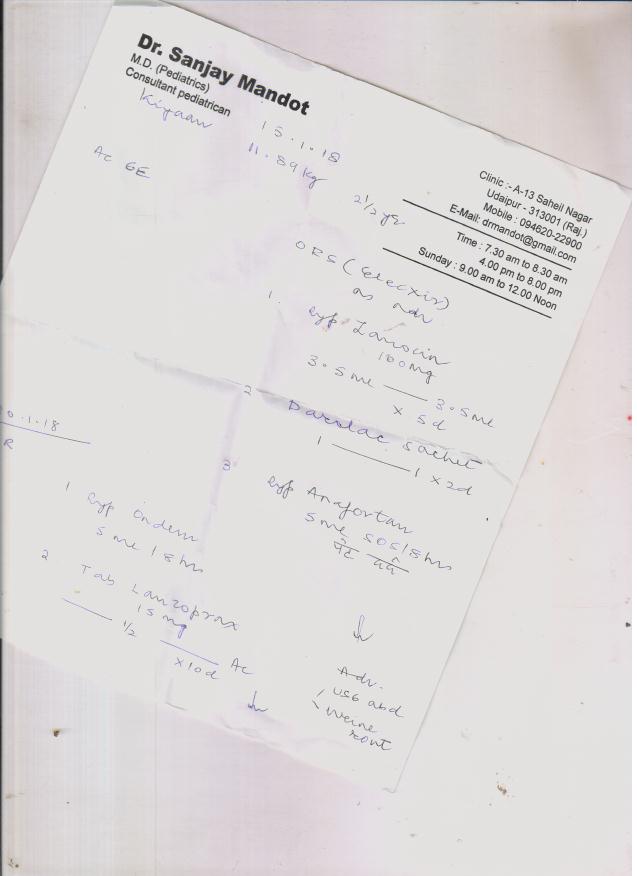 Dr. Sanjay Mandot
M.D. (Pediatrics)
Consultant pediatrican
Clinic :- A-13 Saheli Nagar
Udaipur - 313001 (Raj.)
Mobile : 094620-22900
E-Mail: drmandot@gmail.com
Time : 7.30 am to 8.30 am
4.00 pm to 8.00 pm
Sunday : 9.00 am to 12.00 Noon
Kiyaan
15.1.18
11.89 kg
2 1/2 yr
AC GE
ORS (Elecxir)
as adv
1. Syp Zanocin
100mg
3.5 ml — 3.5 ml
x 5d
2 Darolac sachet
1 — 1 x 2d
3 Syp Anafortan
5 ml SOS/8 hrs
पेट दर्द
Adv.
USG abd
Urine
rout
0.1.18
R
1 Syp Ondem
5 ml / 8 hrs
2 Tab Lanzoprax
15 mg
— 1/2 — AC
x10d